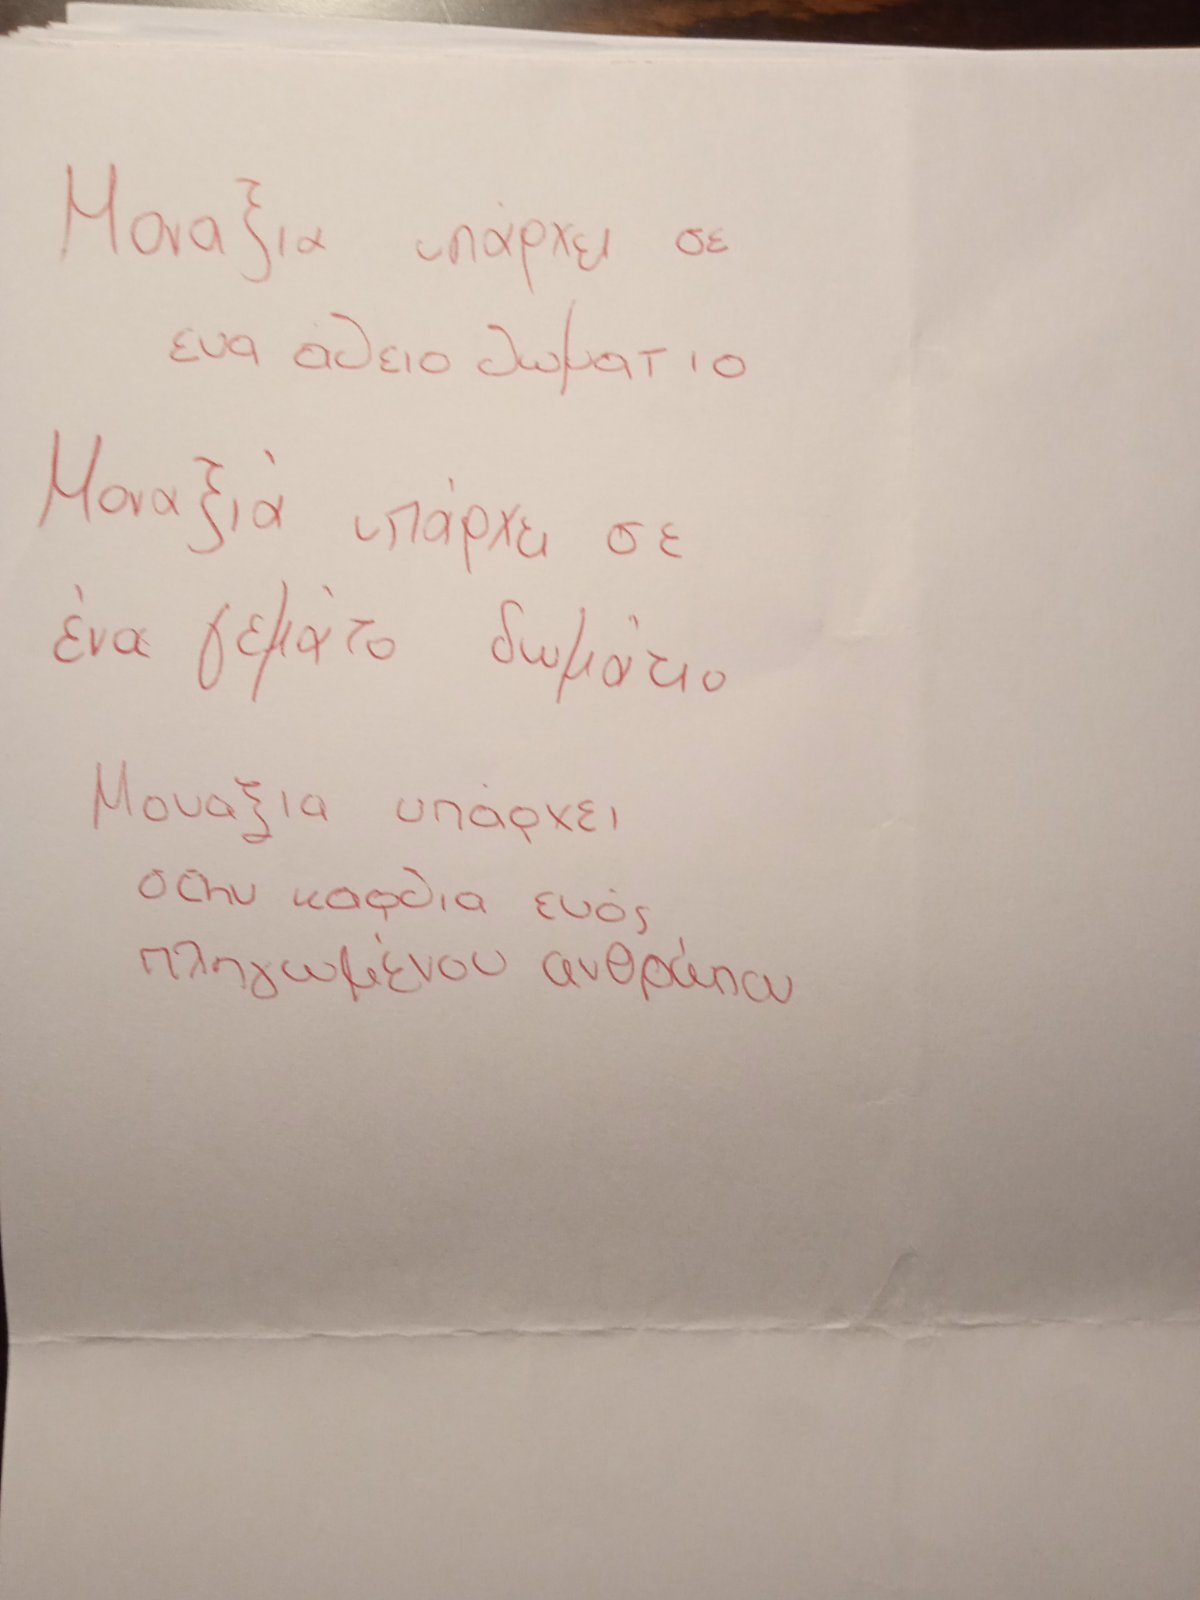 Μοναξια υπάρχει σε
ενα άδειο δωματιο
Μοναξιά υπάρχει σε
ένα γεμάτο δωμάτιο
Μοναξια υπάρχει
στην καρδια ενός
πληγωμένου ανθρώπου